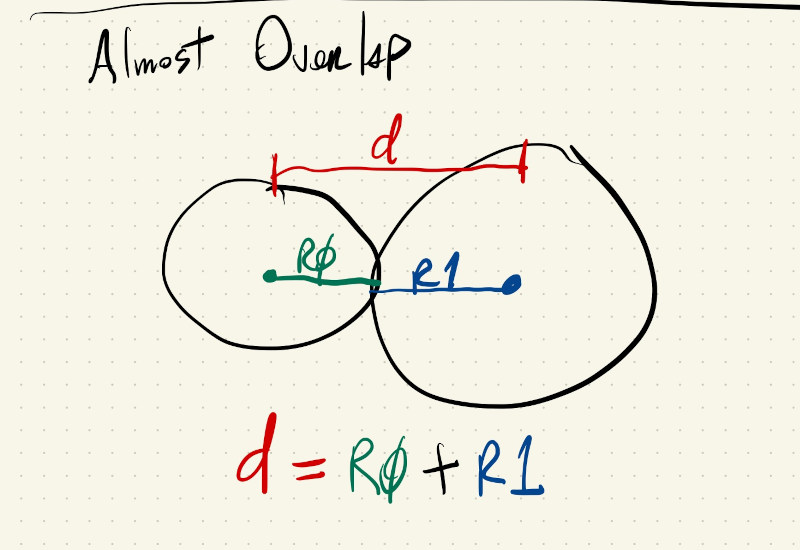 Almost Overlap
d
R0 R1
d = R0 + R1